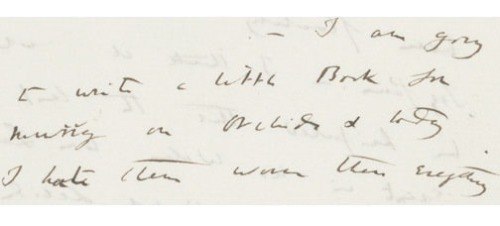 — I am going
to write a little Book for
Murray on Orchids & today
I hate them worse than everything